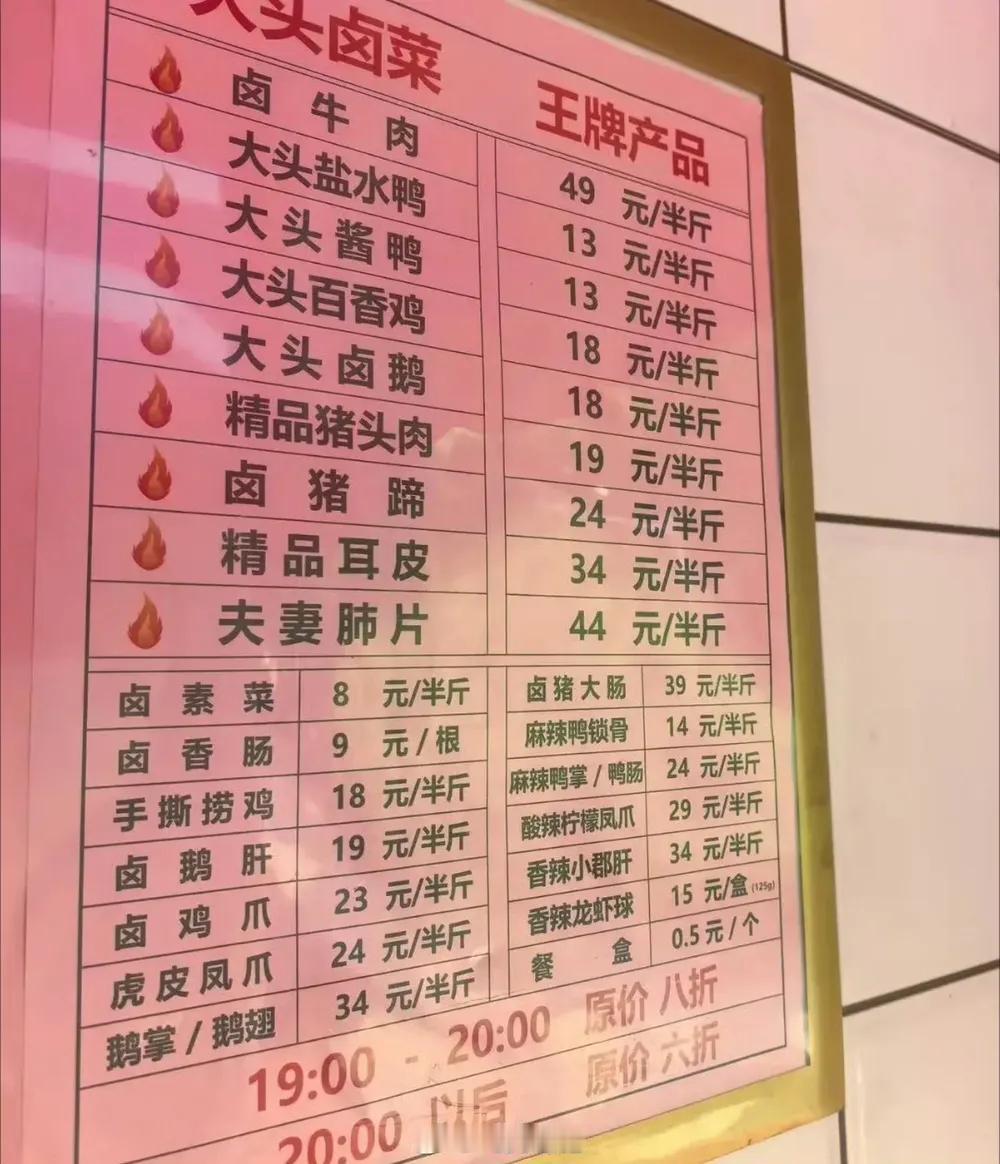 大头卤菜 王牌产品
卤牛肉 49 元/半斤
大头盐水鸭 13 元/半斤
大头酱鸭 13 元/半斤
大头百香鸡 18 元/半斤
大头卤鹅 18 元/半斤
精品猪头肉 19 元/半斤
卤猪蹄 24 元/半斤
精品耳皮 34 元/半斤
夫妻肺片 44 元/半斤
卤素菜 8 元/半斤 卤猪大肠 39 元/半斤
卤香肠 9 元/根 麻辣鸭锁骨 14 元/半斤
手撕捞鸡 18 元/半斤 麻辣鸭掌/鸭肠 24 元/半斤
卤鹅肝 19 元/半斤 酸辣柠檬凤爪 29 元/半斤
卤鸡爪 23 元/半斤 香辣小郡肝 34 元/半斤
虎皮凤爪 24 元/半斤 香辣龙虾球 15 元/盒(125g)
鹅掌/鹅翅 34 元/半斤 餐盒 0.5元/个
19:00 - 20:00 原价 八折
20:00 以后 原价 六折